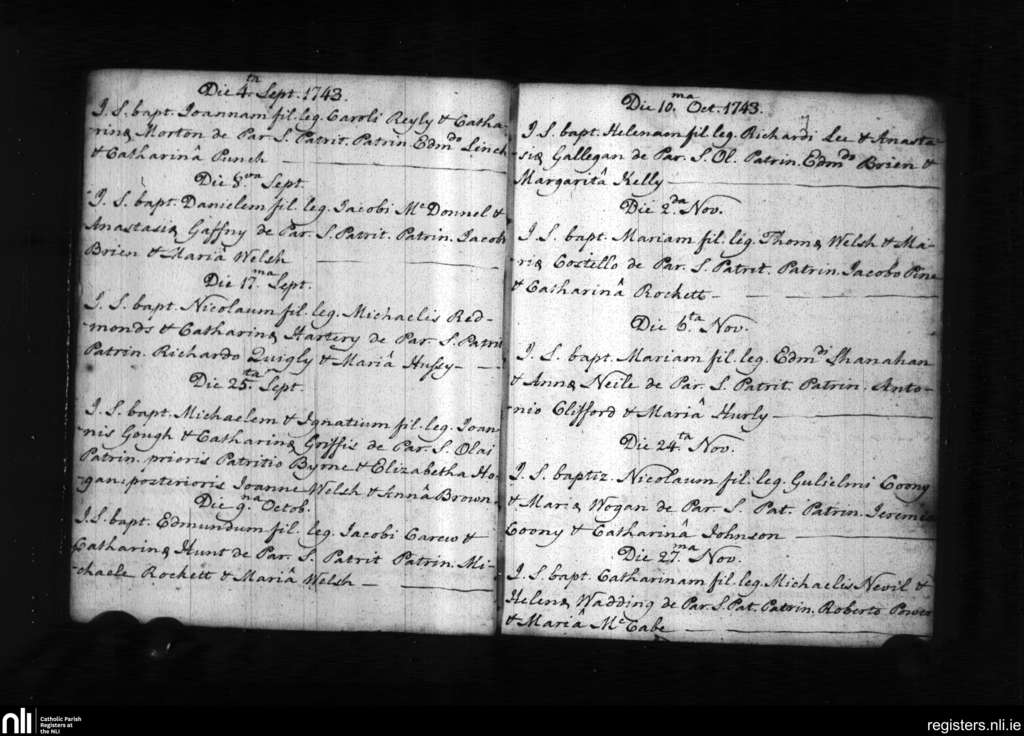 Die 4.ta Sept. 1743.
J. S. bapt. Joannam fil. leg. Caroli Reyly & Catha-
rinæ Morton de Par. S. Patrit. Patrin. Edmdo Linch
& Catharinâ Punch
Die 8.va Sept.
J. S. bapt. Danielem fil. leg. Jacobi McDonnel &
Anastasiæ Gaffny de Par. S. Patrit. Patrin. Jacobo
Brien & Mariâ Welsh
Die 17.ma Sept.
J. S. bapt. Nicolaum fil. leg. Michaelis Red-
monds & Catharinæ Hartery de Par. S. Patrit
Patrin. Richardo Quigly & Mariâ Hussy
Die 25.ta Sept.
J. S. bapt. Michaelem & Ignatium fil. leg. Joan-
nis Gough & Catharinæ Griffis de Par. S. Olai
Patrin. prioris Patritio Byrne & Elizabetha Ho-
gan; posterioris Joanne Welsh & Annâ Brown
Die 9.na Octob.
J. S. bapt. Edmundum fil. leg. Jacobi Carew &
Catharinæ Hunt de Par. S. Patrit Patrin. Mi-
chaele Rockett & Mariâ Welsh
Die 10.ma Oct. 1743.
J. S. bapt. Helenam fil. leg. Richardi Lee & Anasta-
siæ Gallegan de Par. S. Ol. Patrin. Edmdo Brien &
Margaritâ Kelly
Die 2.da Nov.
J. S. bapt. Mariam fil. leg. Thomæ Welsh & Ma-
riæ Costillo de Par. S. Patrit. Patrin. Jacobo Pine
& Catharinâ Rockett
Die 6.ta Nov.
J. S. bapt. Mariam fil. leg. Edmdi Shanahan
& Annæ Neile de Par. S. Patrit. Patrin. Anto-
nio Clifford & Mariâ Hurly
Die 24.ta Nov.
J. S. baptiz. Nicolaum fil. leg. Gulielmi Coony
& Mariæ Wogan de Par. S. Pat. Patrin. Jeremia
Coony & Catharinâ Johnson
Die 27.ma Nov.
J. S. bapt. Catharinam fil. leg. Michaelis Nevil &
Helenæ Wadding de Par. S. Pat. Patrin. Roberto Power
& Mariâ McCabe
nli
Catholic Parish
Registers at
the NLI
registers.nli.ie